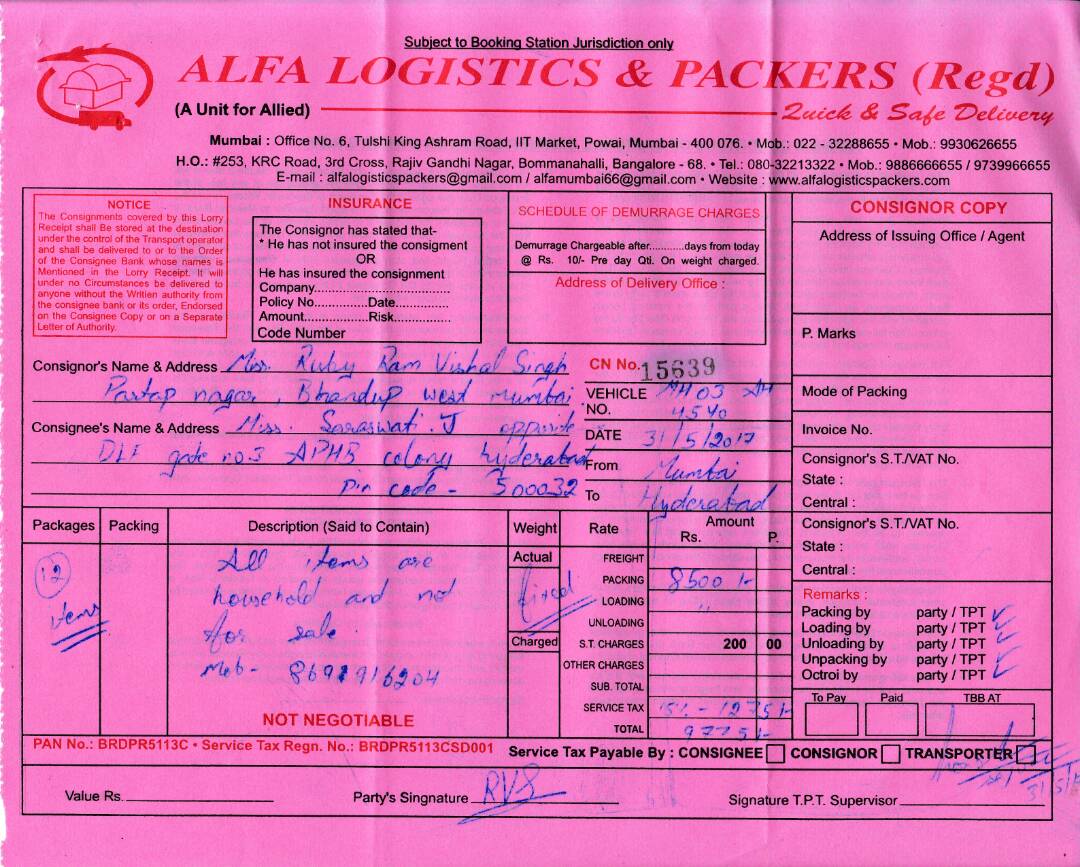 Subject to Booking Station Jurisdiction only
ALFA LOGISTICS & PACKERS (Regd)
(A Unit for Allied)
Quick & Safe Delivery
Mumbai : Office No. 6, Tulshi King Ashram Road, IIT Market, Powai, Mumbai - 400 076. • Mob.: 022 - 32288655 • Mob.: 9930626655
H.O.: #253, KRC Road, 3rd Cross, Rajiv Gandhi Nagar, Bommanahalli, Bangalore - 68. • Tel.: 080-32213322 • Mob.: 9886666655 / 9739966655
E-mail : alfalogisticspackers@gmail.com / alfamumbai66@gmail.com • Website : www.alfalogisticspackers.com
NOTICE
The Consignments covered by this Lorry
Receipt shall Be stored at the destination
under the control of the Transport operator
and shall be delivered to or to the Order
of the Consignee Bank whose names is
Mentioned in the Lorry Receipt. It will
under no Circumstances be delivered to
anyone without the Writien authority from
the consignee bank or its order, Endorsed
on the Consignee Copy or on a Separate
Letter of Authority.
INSURANCE
The Consignor has stated that-
* He has not insured the consigment
OR
He has insured the consignment
Company..............................
Policy No..............Date..............
Amount..................Risk..............
Code Number
SCHEDULE OF DEMURRAGE CHARGES
Demurrage Chargeable after............days from today
@ Rs. 10/- Pre day Qti. On weight charged.
Address of Delivery Office :
CONSIGNOR COPY
Address of Issuing Office / Agent
P. Marks
Mode of Packing
Invoice No.
Consignor's S.T./VAT No.
State :
Central :
Consignor's S.T./VAT No.
State :
Central :
Consignor's Name & Address Miss. Ruby Ram Vishal Singh
Partap nagar, Bhandup west mumbai
Consignee's Name & Address Miss. Saraswati. J opposite
DLF gate no.3 APHB colony hyderabad
Pin code - 500032
CN No. 15639
VEHICLE NO. MH 03 AH 4540
DATE 31/5/2017
From Mumbai
To Hyderabad
Packages Packing Description (Said to Contain) Weight Rate Amount
Rs. P.
12 items
All items are
household and not
for sale
Mob- 8691916204
NOT NEGOTIABLE
Actual
fixed
Charged
FREIGHT
PACKING 8500/-
LOADING "
UNLOADING
S.T. CHARGES 200 00
OTHER CHARGES
SUB. TOTAL
SERVICE TAX 15% - 1275/-
TOTAL 9775/-
Remarks :
Packing by party / TPT ✓
Loading by party / TPT ✓
Unloading by party / TPT ✓
Unpacking by party / TPT ✓
Octroi by party / TPT
To Pay Paid TBB AT
PAN No.: BRDPR5113C • Service Tax Regn. No.: BRDPR5113CSD001
Service Tax Payable By : CONSIGNEE CONSIGNOR TRANSPORTER
Value Rs.
Party's Singnature RVS
Signature T.P.T. Supervisor